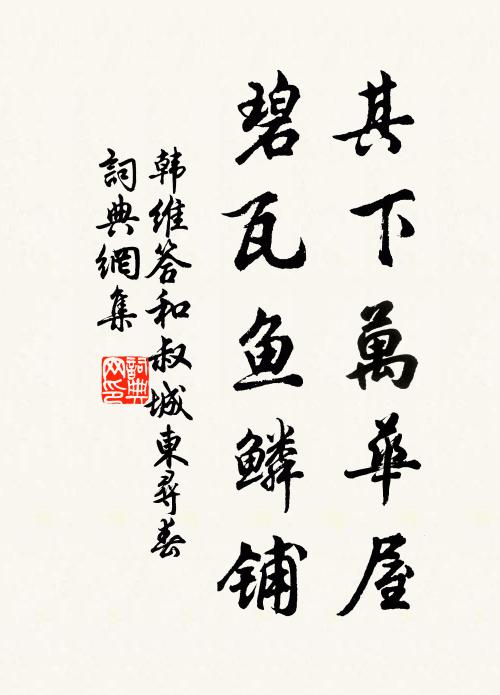 其下萬華屋
碧瓦鱼鳞铺
韩维答和叔城東尋春
詞典網集
詞典网印